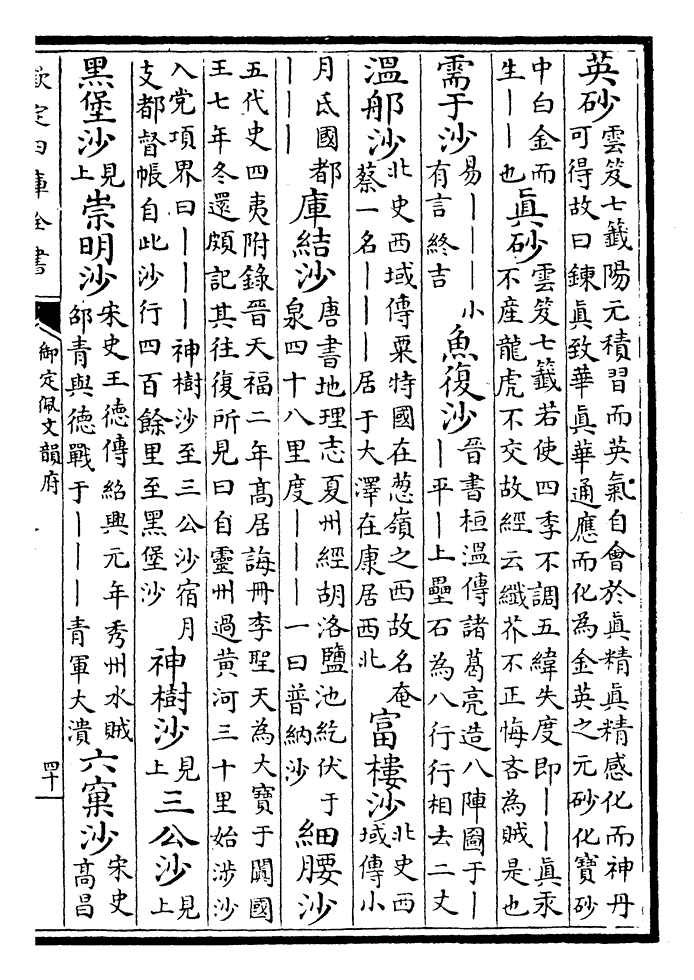 英砂
雲笈七籖陽元積習而英氣自會於眞精眞精感化而神丹
可得故曰鍊眞致華眞華通應而化為金英之元砂化寶砂
中白金而
生丨丨也
眞砂
雲笈七籖若使四季不調五緯失度即丨丨眞汞
不産龍虎不交故經云纖芥不正悔吝為賊是也
需于沙
易丨丨丨小
有言終吉
魚復沙
晉書桓溫傳諸葛亮造八陣圖于丨
丨平丨上壘石為八行行相去二丈
溫郍沙
北史西域傳粟特國在葱嶺之西故名奄
蔡一名丨丨丨居于大澤在康居西北
富樓沙
北史西
域傳小
月氐國都
丨丨丨
庫結沙
唐書地理志夏州經胡洛鹽池紇伏于
泉四十八里度丨丨丨一曰普納沙
細腰沙
五代史四夷附錄晉天福二年髙居誨冊李聖天為大寶于闐國
王七年冬還頗記其往復所見曰自靈州過黄河三十里始涉沙
入党項界曰丨丨丨神樹沙至三公沙宿月
支都督帳自此沙行四百餘里至黑堡沙
神樹沙
見
上
三公沙
見
上
黑堡沙
見
上
崇明沙
宋史王德傳紹興元年秀州水賊
邵青與德戰于丨丨丨青軍大潰
六窠沙
宋史
髙昌
欽定四庫全書
御定佩文韻府
四十